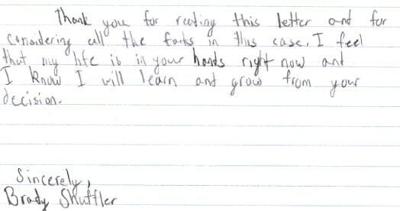 Thank you for reading this letter and for
considering all the facts in this case. I feel
that my life is in your hands right now and
I know I will learn and grow from your
decision.
Sincerely,
Brady Shuffler